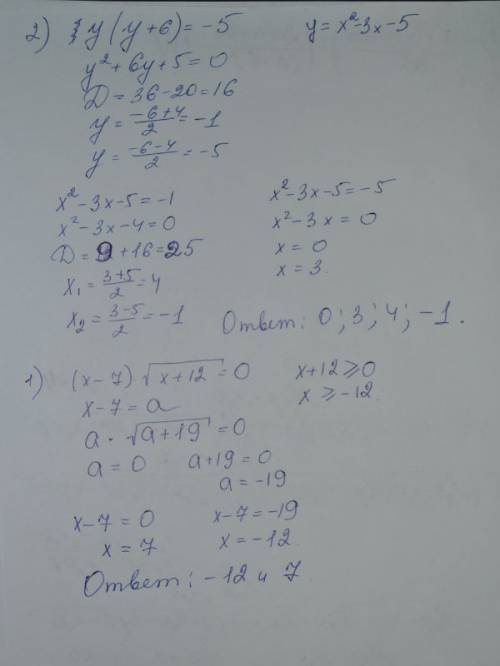 2) y(y+6)=-5   y=x²-3x-5
y²+6y+5=0
D=36-20=16
y=(-6+4)/2=-1
y=(-6-4)/2=-5
x²-3x-5=-1   x²-3x-5=-5
x²-3x-4=0   x²-3x=0
D=9+16=25   x=0
x₁=(3+5)/2=4   x=3.
x₂=(3-5)/2=-1   Ответ: 0; 3; 4; -1.
1) (x-7)·√(x+12)=0   x+12⩾0
x-7=a   x⩾-12.
a·√(a+19)=0
a=0   a+19=0
a=-19
x-7=0   x-7=-19
x=7   x=-12.
Ответ: -12 и 7.